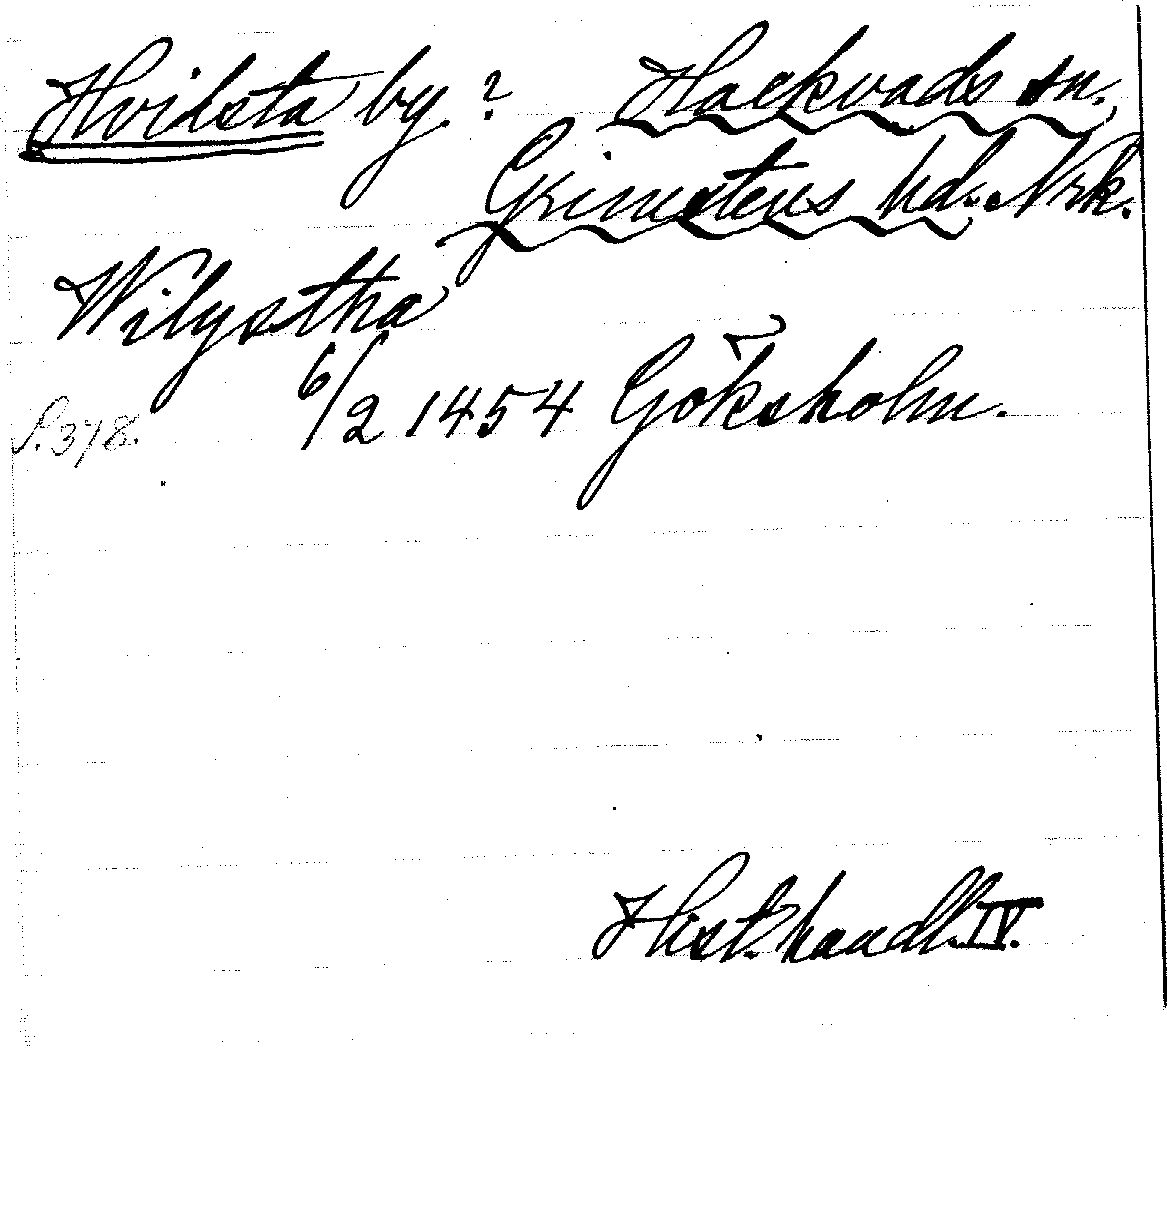 Hvilsta by? Hackvads sn.,
Grimstens hd. Nrk.
Wilystha
6/2 1454 Göksholm.
S. 378.
Hist. handl. IV.